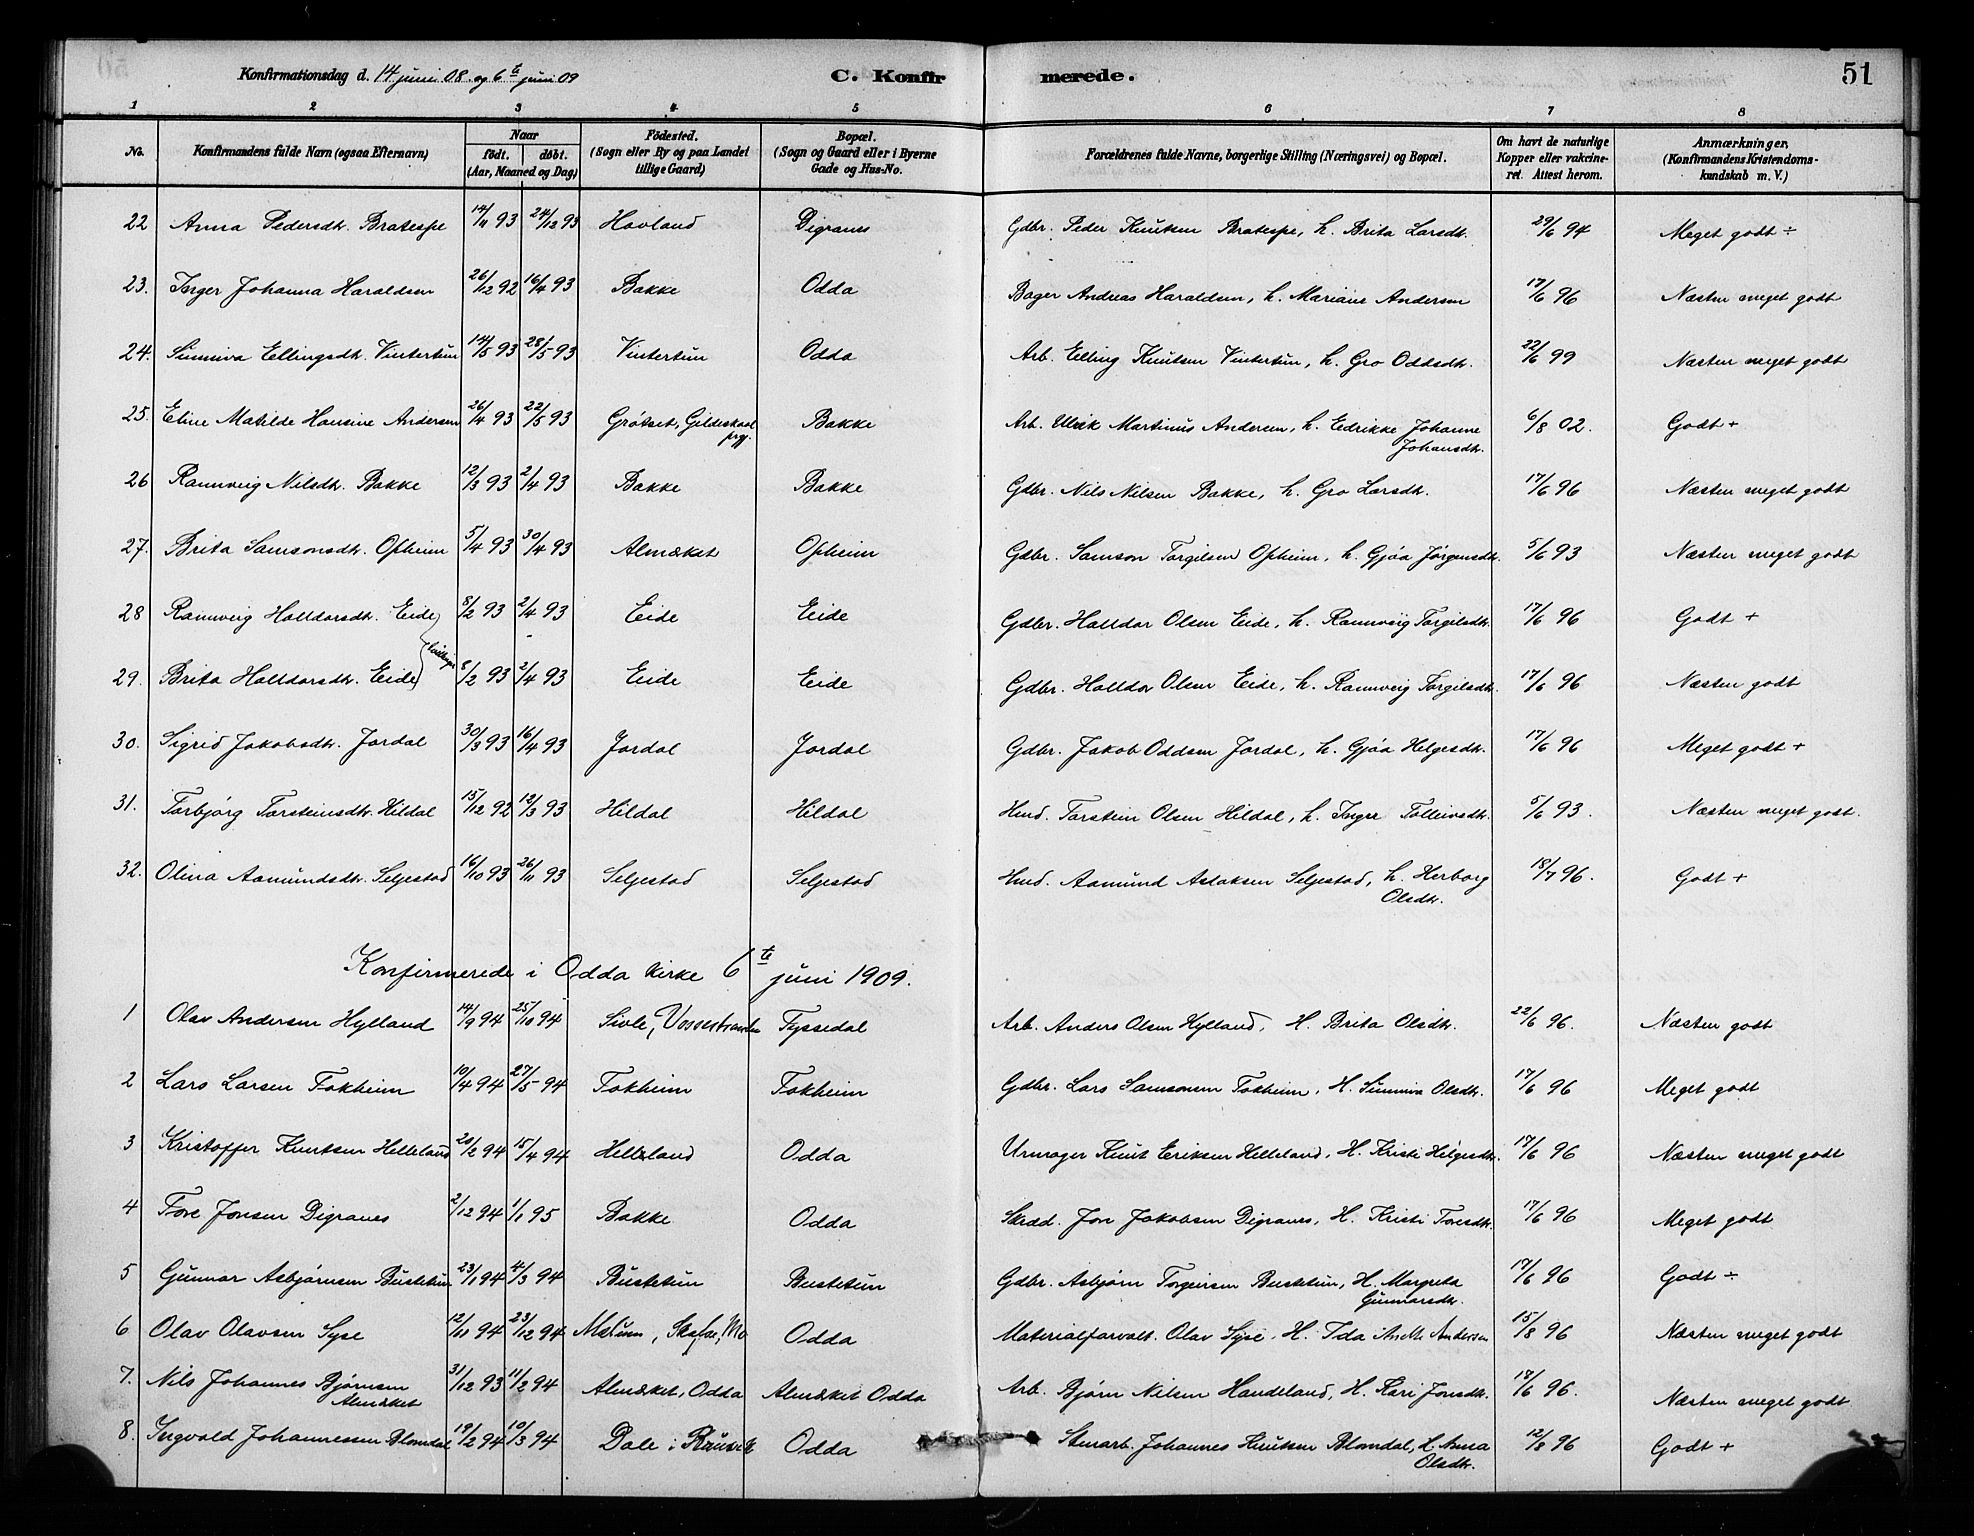 Konfirmationsdag d. 14 juni 08 og 6te juni 09 C. Konfirmerede. 51
1 2 3 4 5 6 7 8
No. Konfirmandens fulde Navn (ogsaa Efternavn) Naar født. døbt. (Aar, Maaned og Dag) Fødested. (Sogn eller By og paa Landet tillige Gaard) Bopæl. (Sogn og Gaard eller i Byerne Gade og Hus-No. Forældrenes fulde Navne, borgerlige Stilling (Næringsvei) og Bopæl. Om havt de naturlige Kopper eller vakcineret. Attest herom. Anmærkninger, (Konfirmandens Kristendomskundskab m. V.)
22 Anna Pedersdtr. Bratespe 14/11 93 24/12 93 Hovland Digranes Gdbr. Peder Knutsen Bratespe, h. Brita Larsdtr. 29/6 94 Meget godt ÷
23. Inger Johanna Haraldsen 26/12 92 16/4 93 Bakke Odda Bager Andreas Haraldsen, h. Mariane Andersen 17/6 96 Næsten meget godt
24. Sunniva Ellingsdtr. Vintertun 14/5 93 28/5 93 Vintertun Odda Arb. Elling Knutsen Vintertun, h. Gro Oddsdtr. 22/6 99 Næsten meget godt
25. Eline Matilde Hansine Andersen 26/4 93 22/5 93 Grøtset, Gildeskaal prg. Bakke Arb. Ulrik Martinus Andersen, h. Edrikke Johanne Johansdtr. 6/8 02. Godt +
26 Rannveig Nilsdtr. Bakke 12/3 93 2/4 93 Bakke Bakke Gdbr. Nils Nilsen Bakke, h. Gro Larsdtr. 17/6 96 Næsten meget godt
27. Brita Samsonsdtr. Opheim 5/4 93 30/4 93 Almæket Opheim Gdbr. Samson Torgilsen Opheim, h. Gjøa Jørgensdtr. 5/6 93 Næsten meget godt
28 Rannveig Halldorsdtr. Eide 8/2 93 2/4 93 Eide Eide Gdbr. Halldor Olsen Eide, h. Rannveig Torgilsdtr. 17/6 96 Godt +
29. Brita Halldorsdtr. Eide } tvillinger 8/2 93 2/4 93 Eide Eide Gdbr. Halldor Olsen Eide, h. Rannveig Torgilsdtr. 17/6 96 Næsten godt
30. Sigrid Jakobsdtr. Jordal 30/3 93 16/4 93 Jordal Jordal Gdbr. Jakob Oddsen Jordal, h. Gjøa Helgesdtr. 17/6 96 Meget godt +
31. Torbjørg Torsteinsdtr. Hildal 15/12 92 12/3 93 Hildal Hildal Hmd. Torstein Olsen Hildal, h. Inger Tolleivsdtr. 5/6 93. Næsten meget godt.
32. Olina Aamundsdtr. Seljestad 16/10 93 26/11 93 Seljestad Seljestad Hmd. Aamund Aslaksen Seljestad, h. Herborg Olsdtr. 18/7 96. Godt +
Konfirmerede i Odda kirke 6te juni 1909.
1 Olav Andersen Hylland 14/9 94 25/10 94 Sivle, Vossestranden Tyssedal Arb. Anders Olsen Hylland, H. Brita Olsdtr. 22/6 96. Næsten godt
2 Lars Larsen Tokheim 10/4 94 27/5 94 Tokheim Tokheim Gdbr. Lars Samsonsen Tokheim, H. Sunniva Olsdtr. 17/6 96 Meget godt
3 Kristoffer Knutsen Helleland 20/2 94 15/4 94 Helleland Odda Urmager Knut Eriksen Helleland, H. Kristi Helgesdtr. 17/6 96 Næsten meget godt
4 Tore Jonsen Digranes 2/12 94 1/1 95 Bakke Odda Skræd. Jon Jakobsen Digranes, H. Kristi Toresdtr. 17/6 96 Meget godt
5 Gunnar Asbjørnsen Bustetun 23/1 94 4/3 94 Bustetun Bustetun Gdbr. Asbjørn Torgeirsen Bustetun, H. Margreta Gunnarsdtr. 17/6 96 Godt ÷
6 Olav Olavsen Syse 12/11 94 23/12 94 Odda Materialforvalt. Olav Syse, H. Ida Andersen 15/8 96 Næsten meget godt
7. Nils Johannes Bjørnsen Almæket 31/12 93 11/2 94 Almæket, Odda Almæket Odda Arb. Bjørn Nilsen Handeland, H. Kari Jonsdtr. 17/6 96. Næsten meget godt
8. Ingvald Johannessen Blomdal 19/2 94 10/3 94 Dale i Odda Stenarb. Johannes Knutsen Blomdal, h. Anna Olsdtr. 12/8 96 Godt +